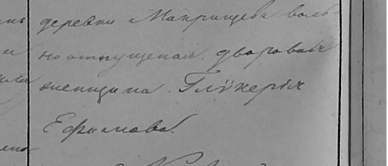 деревни Макрищева воль
но отпущеная дворовая
женщина Глукерья
Ефимова.